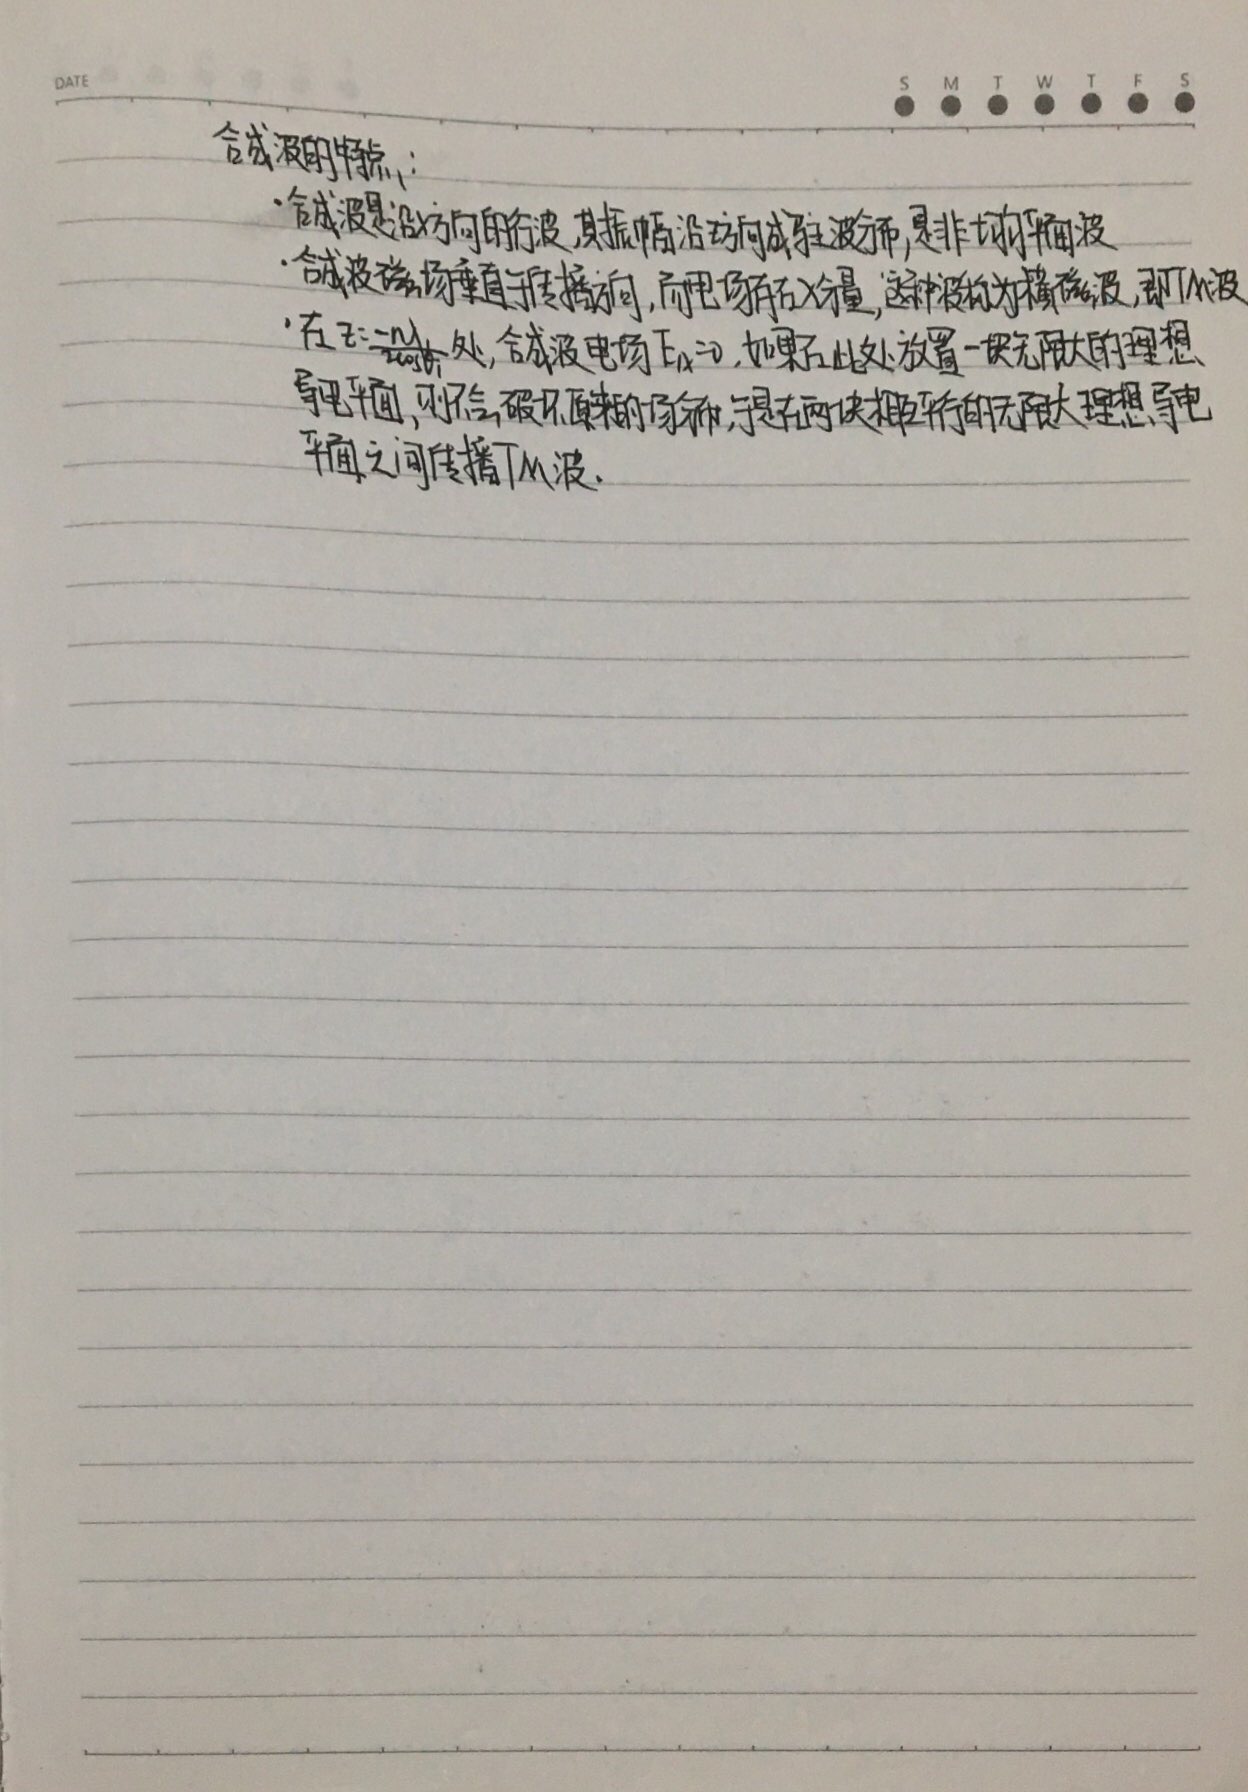 DATE
S M T W T F S
合成波的特点:
·合成波是沿x方向的行波,其振幅沿z方向成驻波分布,是非均匀平面波
·合成波磁场垂直于传播方向,而电场存在x分量,这种波称为横磁波,即TM波
·在z=-nλ/2cosθi处,合成波电场Ex=0.如果在此处放置一块无限大的理想
导电平面,则不会破坏原来的场分布,于是在两块相互平行的无限大理想导电
平面之间传播TM波.